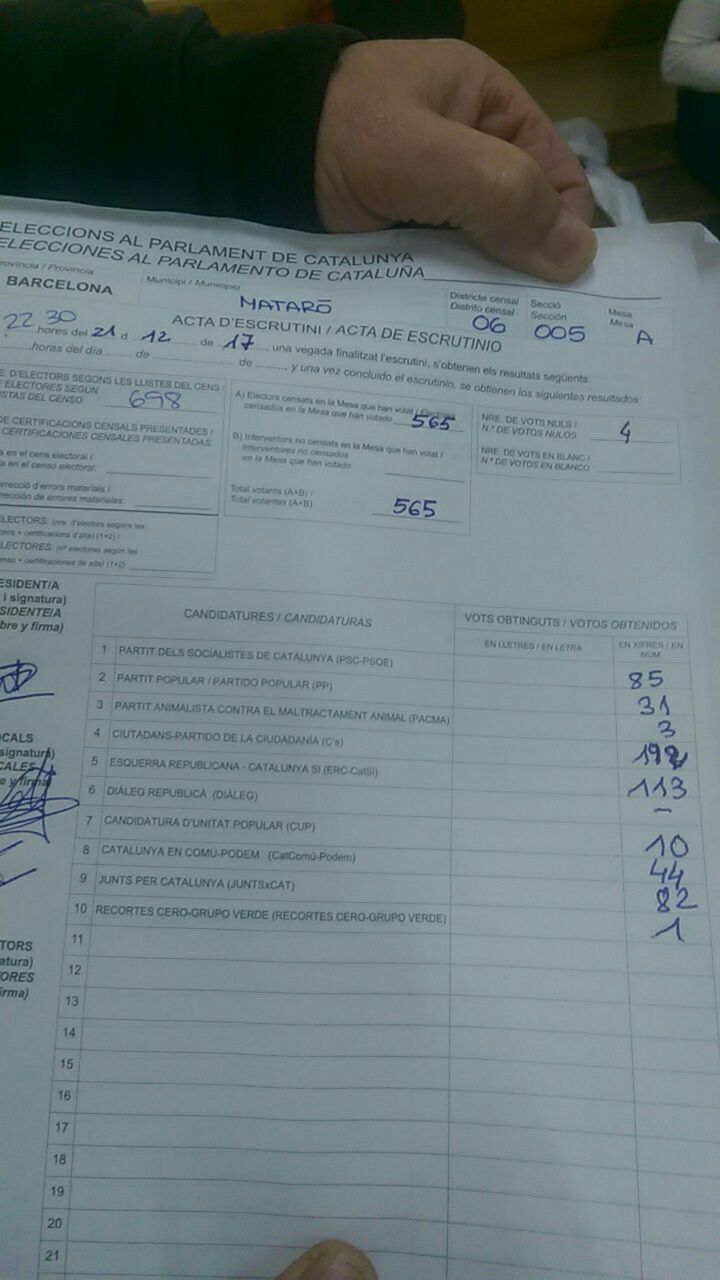 ELECCIONS AL PARLAMENT DE CATALUNYA
ELECCIONES AL PARLAMENTO DE CATALUÑA
Província / Provincia
BARCELONA
Municipi / Municipio
MATARÓ
Districte censal
Distrito censal
06
Secció
Sección
005
Mesa
Mesa
A
ACTA D'ESCRUTINI / ACTA DE ESCRUTINIO
22 30 hores del 21 d 12 de 17, una vegada finalitzat l'escrutini, s'obtenen els resultats següents:
horas del día de de , y una vez concluido el escrutinio, se obtienen los siguientes resultados:
E. D'ELECTORS SEGONS LES LLISTES DEL CENS /
E ELECTORES SEGÚN
STAS DEL CENSO 698
DE CERTIFICACIONS CENSALS PRESENTADES /
CERTIFICACIONES CENSALES PRESENTADAS
a en el cens electoral /
a en el censo electoral:
rrecció d'errors materials /
rrección de errores materiales:
ELECTORS: (nre. d'electors segons les
cens + certificacions d'alta) (1+2) /
ELECTORES: (nº electores según las
enso + certificaciones de alta) (1+2)
A) Electors censats en la Mesa que han votat / Electores
censados en la Mesa que han votado 565
B) Interventors no censats en la Mesa que han votat /
Interventores no censados
en la Mesa que han votado
Total votants (A+B) /
Total votantes (A+B) 565
NRE. DE VOTS NULS /
N.º DE VOTOS NULOS 4
NRE. DE VOTS EN BLANC /
N.º DE VOTOS EN BLANCO
ESIDENT/A
i signatura)
SIDENTE/A
bre y firma)
OCALS
signatura)
CALES
e y firma)
TORS
atura)
ORES
irma)
CANDIDATURES / CANDIDATURAS
VOTS OBTINGUTS / VOTOS OBTENIDOS
EN LLETRES / EN LETRA
EN XIFRES / EN NÚM.
1 PARTIT DELS SOCIALISTES DE CATALUNYA (PSC-PSOE) 85
2 PARTIT POPULAR / PARTIDO POPULAR (PP) 31
3 PARTIT ANIMALISTA CONTRA EL MALTRACTAMENT ANIMAL (PACMA) 3
4 CIUTADANS-PARTIDO DE LA CIUDADANÍA (C's) 192
5 ESQUERRA REPUBLICANA - CATALUNYA SÍ (ERC-CatSí) 113
6 DIÀLEG REPUBLICÀ (DIÀLEG) -
7 CANDIDATURA D'UNITAT POPULAR (CUP) 10
8 CATALUNYA EN COMÚ-PODEM (CatComú-Podem) 44
9 JUNTS PER CATALUNYA (JUNTSxCAT) 82
10 RECORTES CERO-GRUPO VERDE (RECORTES CERO-GRUPO VERDE) 1
11
12
13
14
15
16
17
18
19
20
21